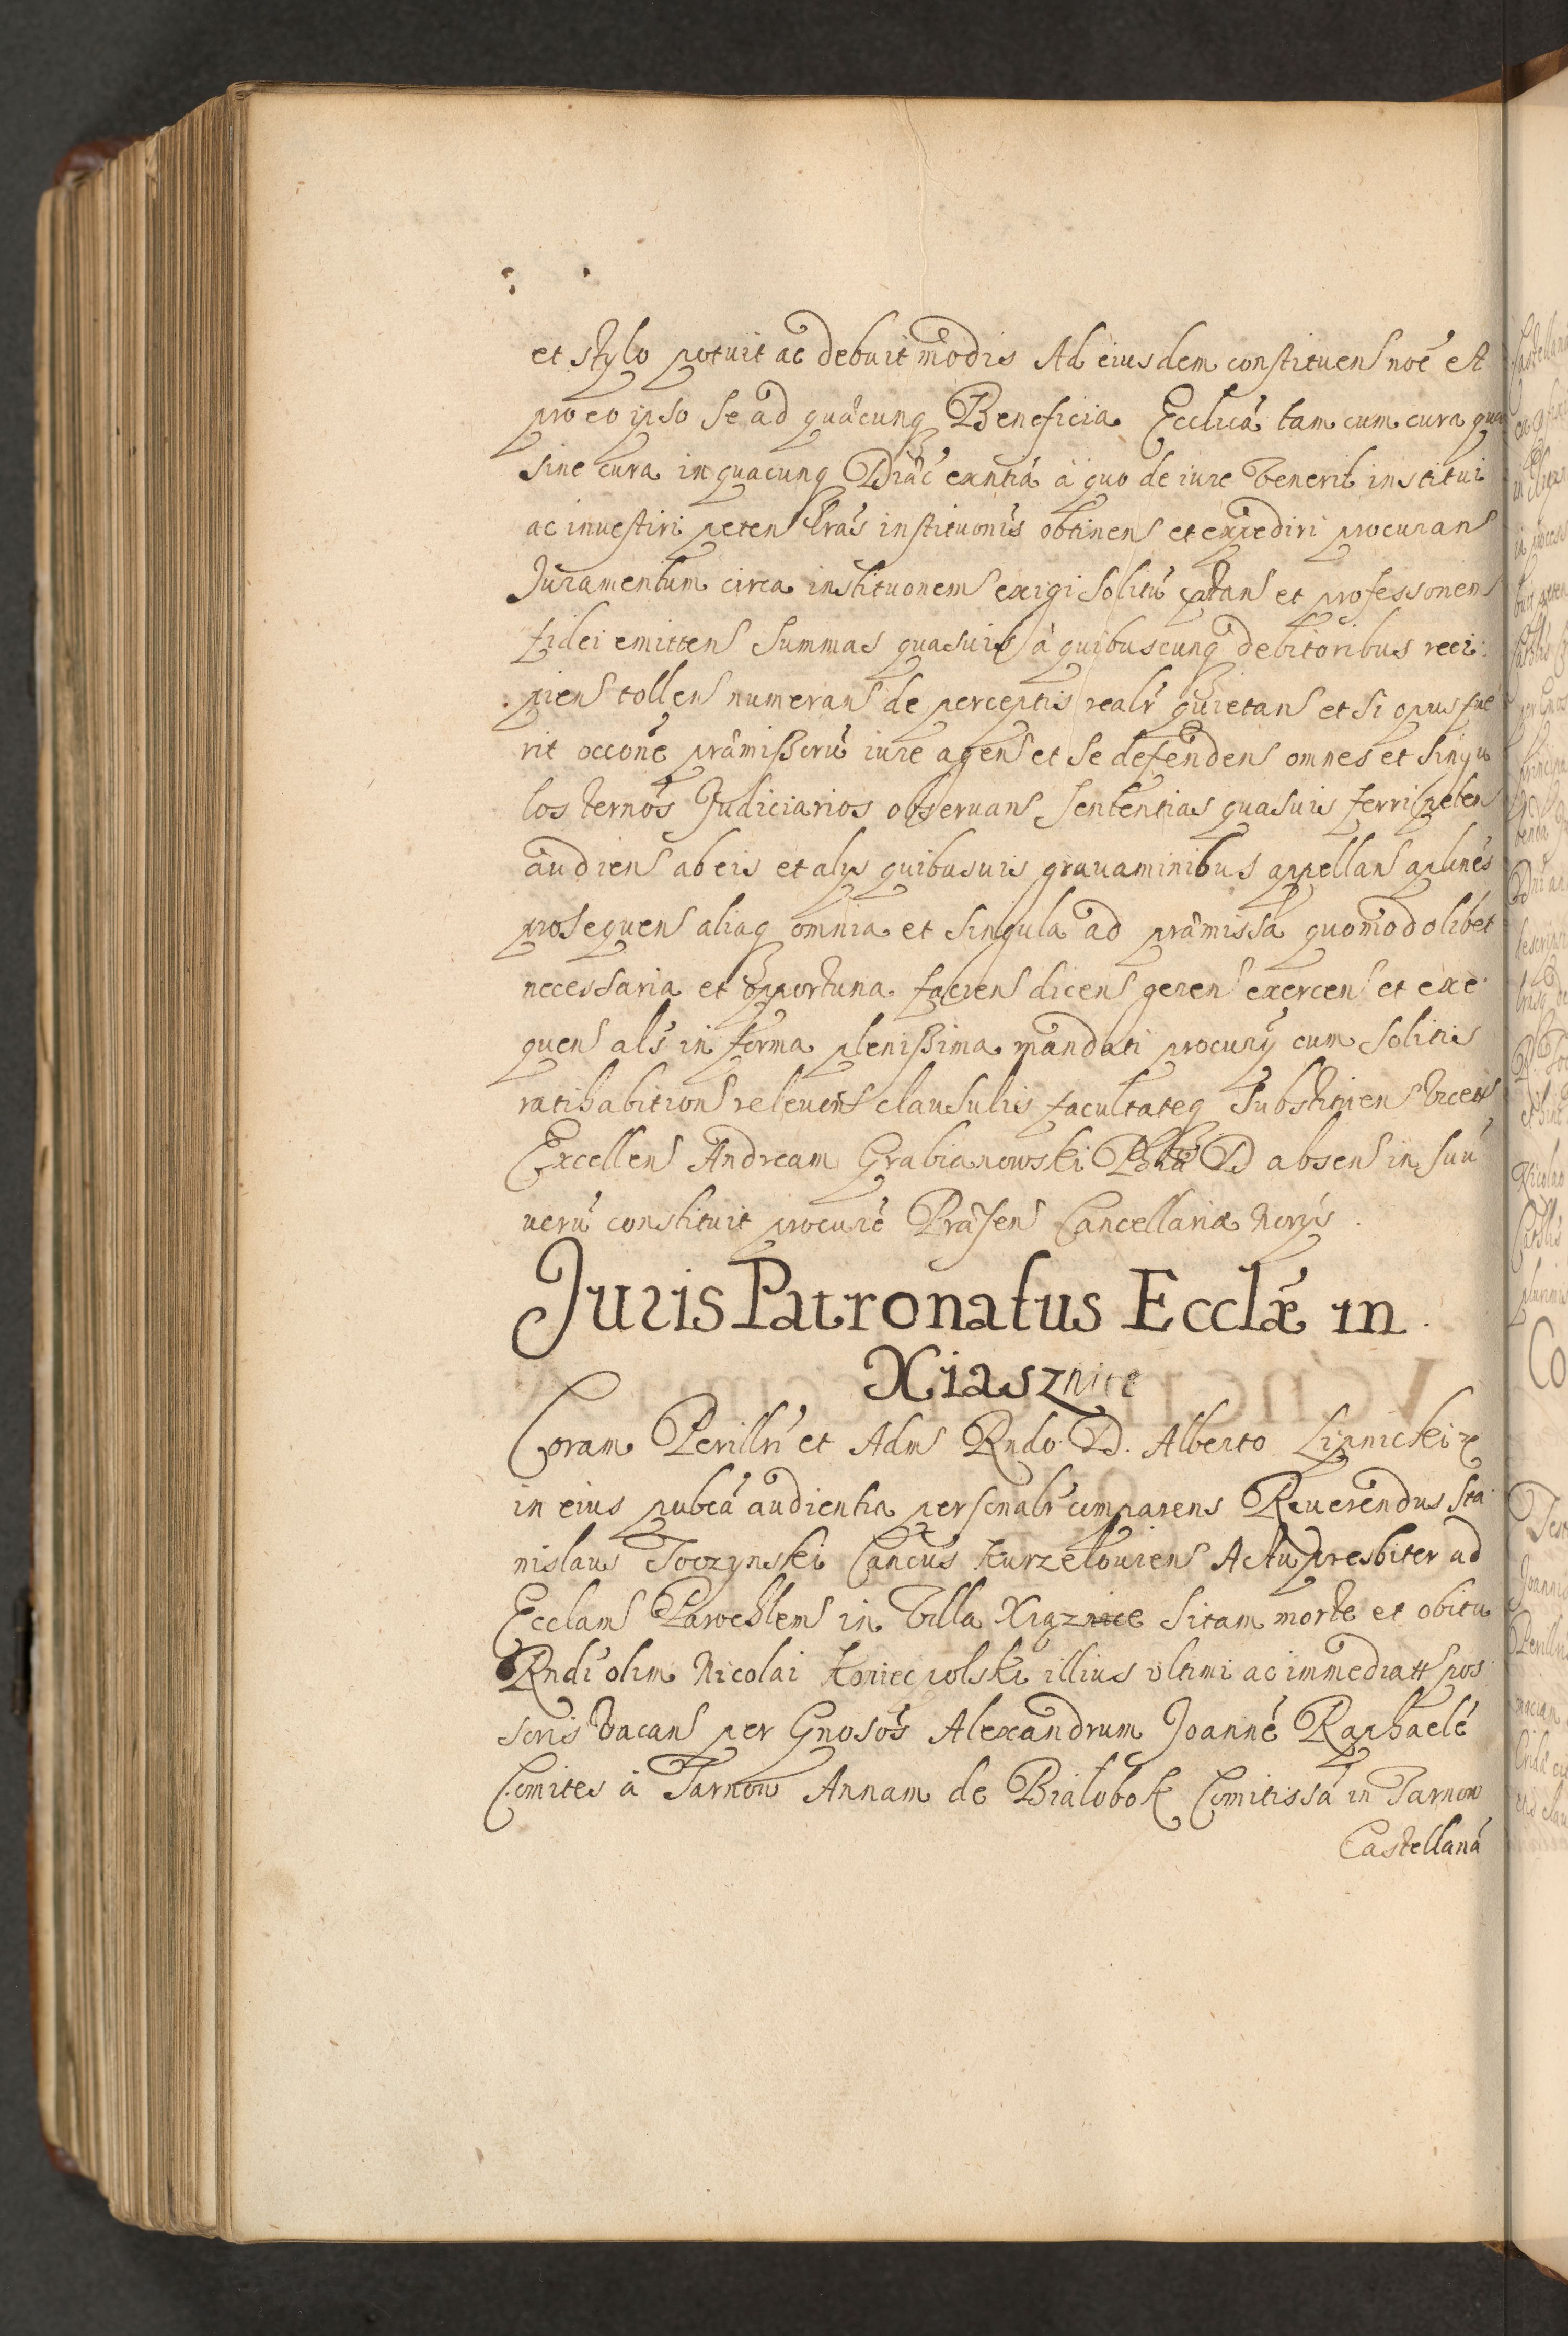 et stylo potuit ac debuit modis Ad eiusdem constituens noe et
pro eo ipso se ad quacunq Beneficia Ecclica tam cum cura qua
sine cura in quacunq Diac exntia à quo de iure Venerit institui
ac inuestiri peten Lras instituonis obtinens et expediri procurans
Juramentum circa instituonem exigi solitu pstans et professonem
fidei emittens summas quasuis à quibuscunq debitoribus reci:
piens tollens numerans de perceptis realr quietans et si opus fue
rit occone præmissoru iure agens et se defendens omnes et singu
los ternos Judiciarios obseruans sententias quasuis ferri petens
audiens ab eis et alys quibusuis grauaminibus appellans aplnes
prosequens aliaq omnia et singula ad præmissa quomodolibet
necessaria et opportuna faciens dicens gerens exercens et exe
quens als in forma plenissima mandati procury cum solitis
ratihabitions releuons clausulis facultateq substituen
Excellens Andream Grabianowski D absens in suu
ueru constituit procure Præsen Cancellariæ Norys.
Juris Patronatus Ecclæ in
Xiasznice
Coram Perillri et Adm Rndo D. Alberto Lipnicki
in eius pubca audientia personalr comparens Reuerendus Sta
nislaus Toczynski Cancus Kurzelouiens Actu presbiter ad
Ecclam Parochlem in Villa Xiąznice sitam morte et obitu
Rndi olim Nicolai Koniecpolski illius ultimi ac immediatt pos
soris Vacans per Gnosos Alexandrum Joanne Raphaele
Comites à Tarnow Annam de Białobok Comitissa in Tarnow
Castellana